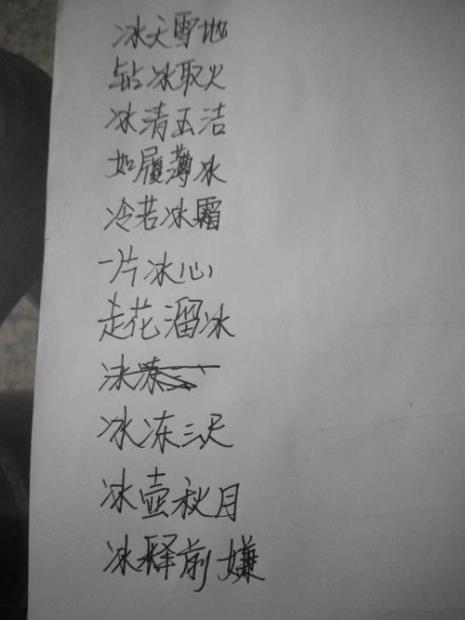 冰天雪地
钻冰取火
冰清玉洁
如履薄冰
冷若冰霜
一片冰心
走花溜冰
冰
冰冻三尺
冰壶秋月
冰释前嫌